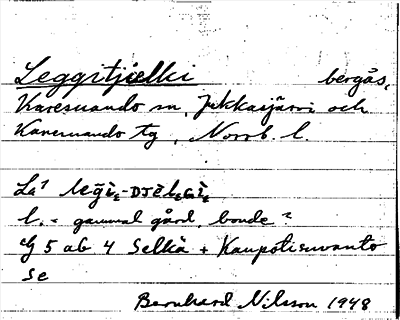 Leggitjielki bergås,
Karesuando sn, Jukkasjärvi och
Karesuando tg, Norrb. l.
La
l. = gammal gård, bonde
G 5 ab 4 Selkä + Kaupotisuvanto
se
Bernhard Nilsson 1948